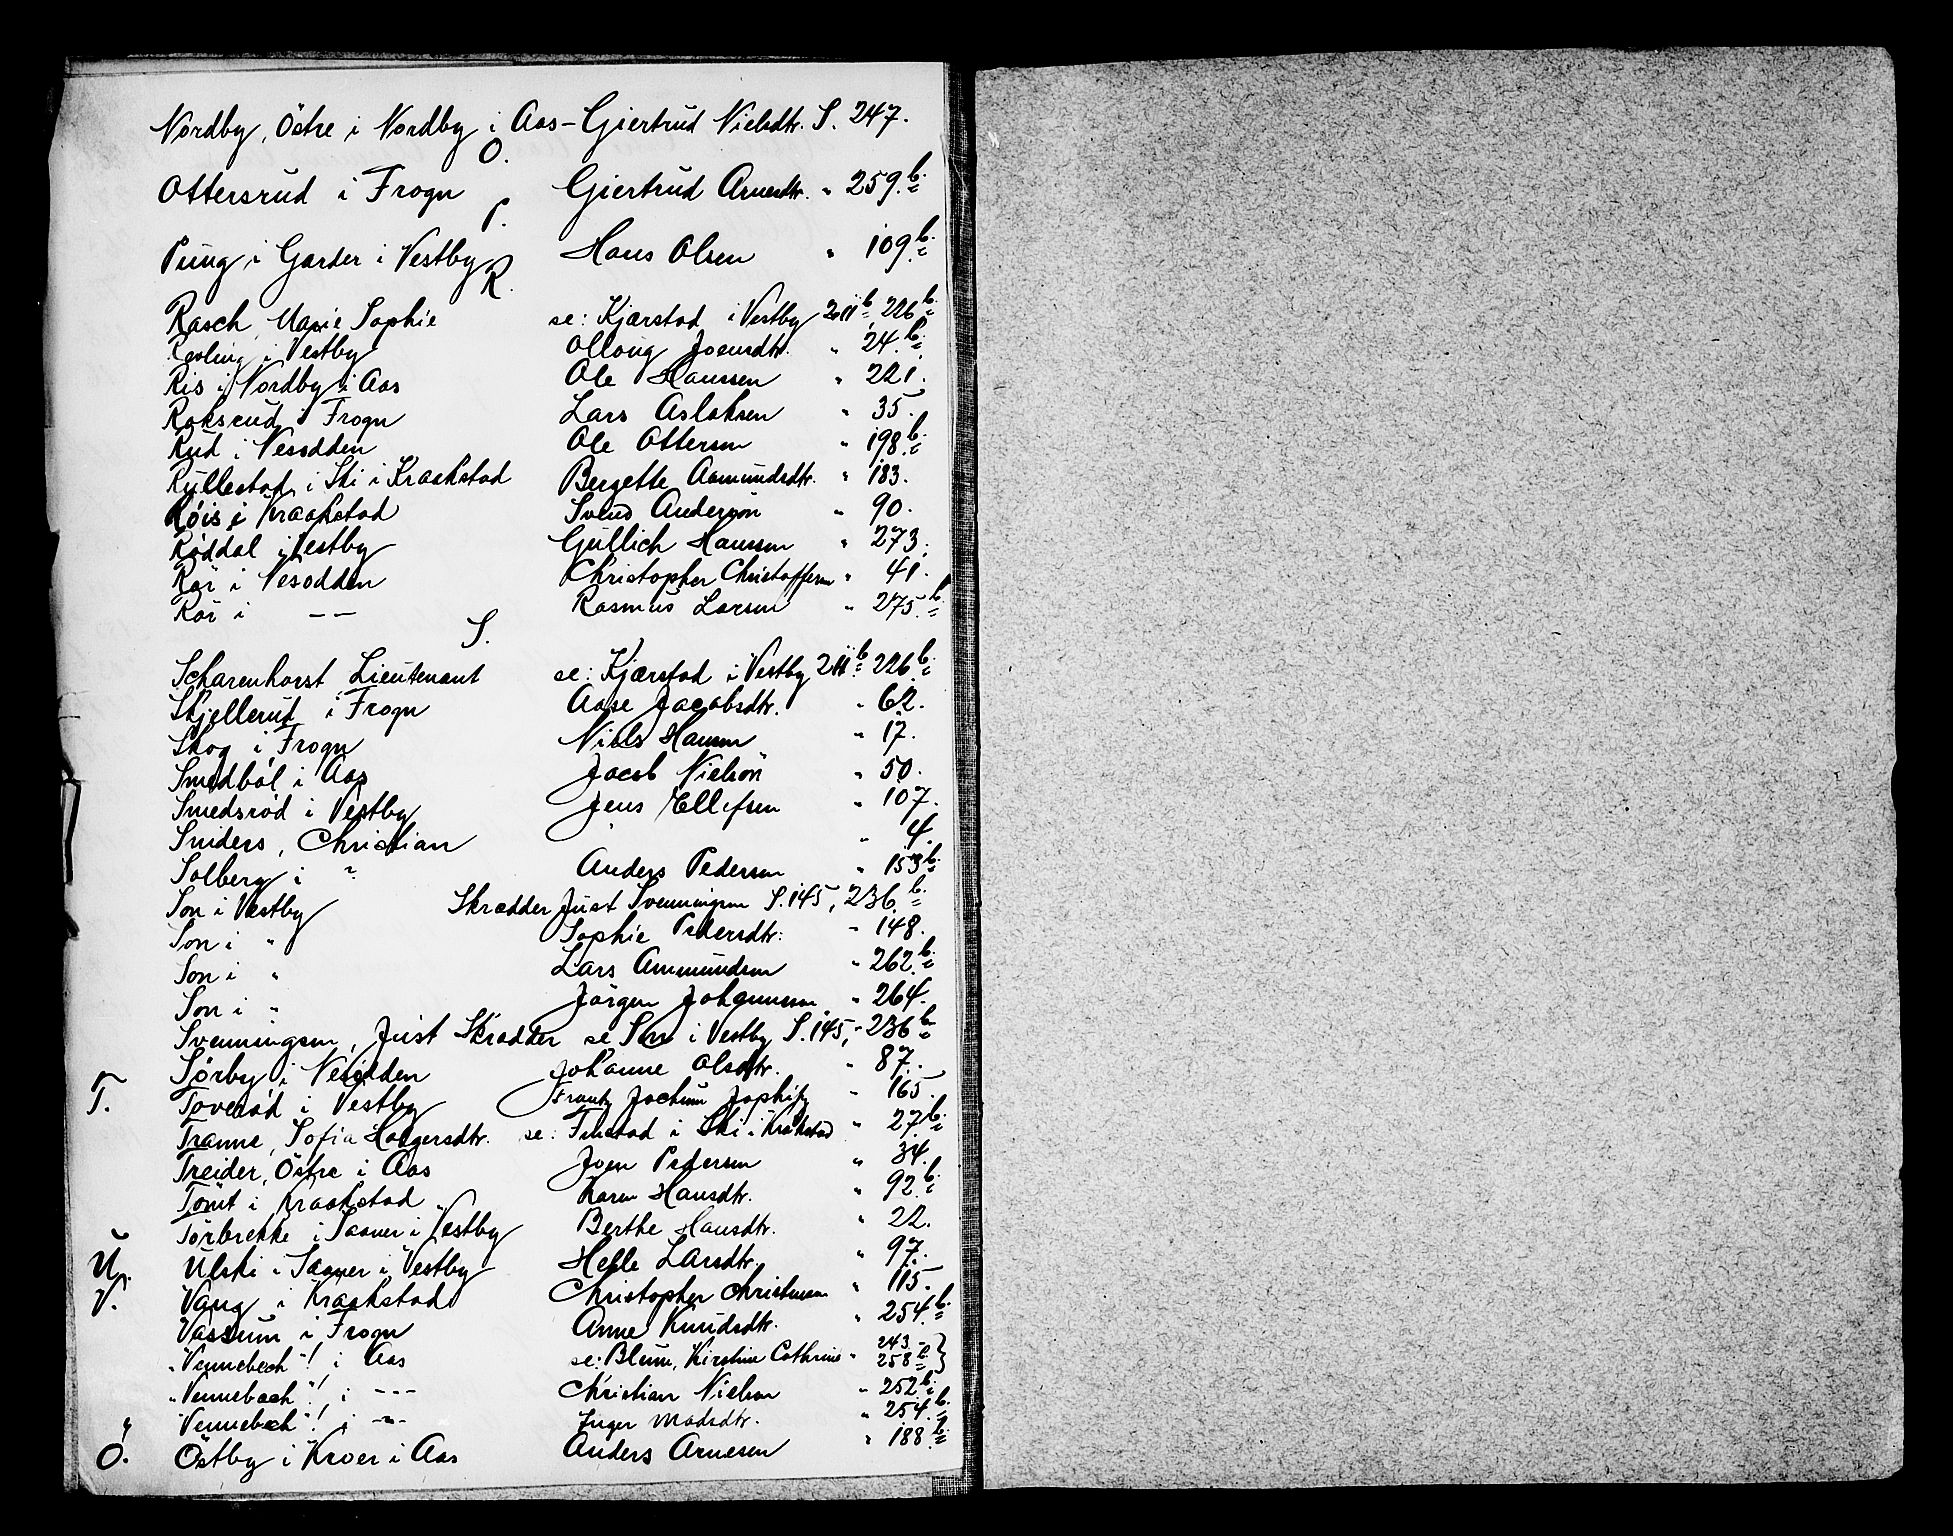 Nordby, Östre i Nordby i Aas - Giertrud Nielsdtr. S. 247.
O.
Ottersrud i Frogn Giertrud Arnesdtr. " 259.b.
P.
Pung i Garder i Vestby Hans Olsen " 109.b.
R.
Rasch, Marie Sophie se: Kjærstad i Vestby 211b 226b.
Revling i Vestby Ollaug Joensdtr. " 24.b.
Ris i Nordby i Aas Ole Hanssen " 221.
Roksrud i Frogn Lars Aslaksen " 35.
Rud i Nesodden Ole Ottersen " 198.b.
Rullestad i Ski i Kraakstad Bergette Aamundsdtr. " 183.
Röis i Kraakstad Svend Andersön " 90.
Röddal i Vestby Gullich Hanssen " 273.
Rör i Nesodden Christopher Christoffersen " 41.
Rör i -- Rasmus Larsen " 275.b.
S.
Scharenhorst Lieutenant se: Kjærstad i Vestby 211b 226b.
Skjellerud i Frogn Aase Jacobsdtr. " 62.
Skog i Frogn Niels Hansen " 17.
Smedböl i Aas Jacob Nielsön " 50.
Smedsröd i Vestby Jens Ellefsen " 107.
Sniders, Christian " 4.
Solberg i ? Anders Pedersen " 153b.
Son i Vestby Skrædder Just Svenningsen S. 145, 236.b.
Son i " Sophie Pedersdtr. " 148.
Son i " Lars Ammundsen " 262.b.
Son i " Jörgen Johannesen " 264.
Svenningsen, Just Skrædder se Son i Vestby S. 145, " 236b
Sörby i Nesodden Johanne Olsdtr. " 87.
T. Toveröd i Vestby Frantz Jochum " 165.
Tranne, Sofia Holgersdtr. se: Finstad i Ski i Kråkstad " 27b.
Treider, Östre i Aas Joen Pedersen " 34.
Tomt i Kraakstad Karen Hansdtr. " 92.b.
Torbrekke i Saaner i Vestby Berthe Hansdtr. " 22.
U. Ulski i Saaner i Vestby Helle Larsdtr. " 97.
V. Vang i Kraakstad Christopher Christensen " 115.
Vassum i Frogn Anne Knudsdtr. " 254.b.
"Vennebech"! i Aas se: Blum, Kirstine Cathrine " 243. 258b
"Vennebæch"! i --- Christian Nielsen " 252b.
"Vennebech"! i -"- Inger Madsdtr. " 254.b.
Ö. Östby i Kroer i Aas Anders Arnesen " 188.b.